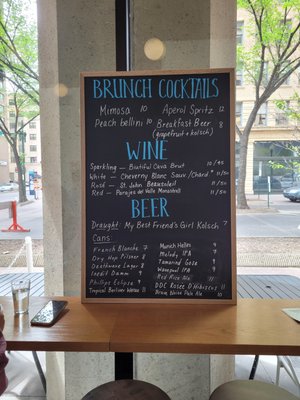 BRUNCH COCKTAILS
Mimosa 10 Aperol Spritz 12
Peach bellini 10 Breakfast Beer 8
(grapefruit + kolsch)
WINE
Sparkling - Biutiful Cava Brut 10/45
White - Cheverny Blanc Sauv./Chard. 11/50
Rosé - St. John Beauseleil 11/50
Red - Parajes del Valle Monastrell 11/50
BEER
Draught: My Best Friend's Girl Kolsch 7
Cans
French Blanche 7 Munich Helles
Dry Hop Pilsner 8 Melody IPA 7
Deathwave Lager 8 Tamarind Gose 9
Inedit Damm 9 Wavepool IPA
Phillips Eclipse Red Rice Ale
Tropical Berliner Weisse DDC Rosée D'Hibiscus 11
Pale Ale